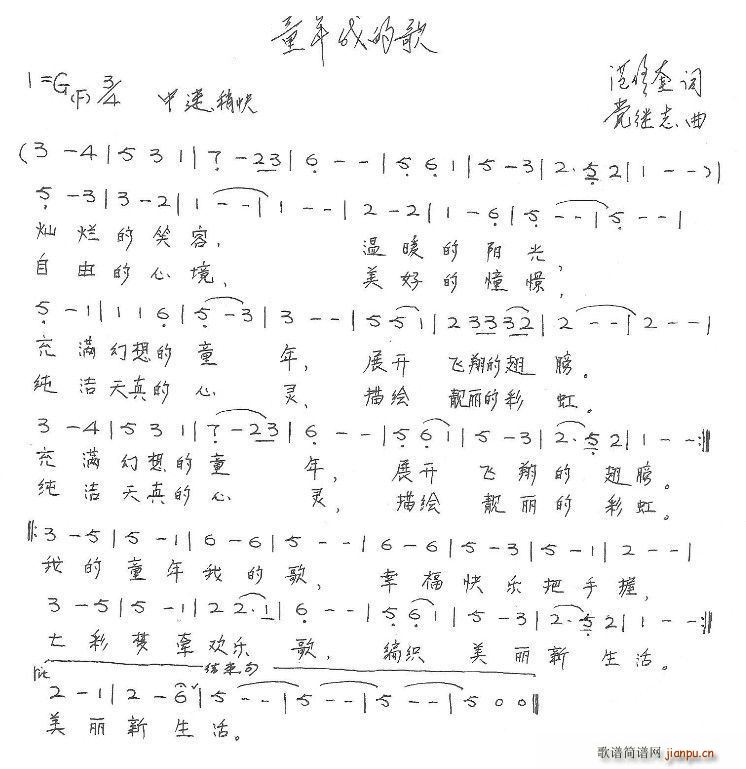 童年我的歌
1=G(F) 3/4 中速稍快
范修奎 词
党继志 曲
(3 - 4 | 5 3 1 | 7 - 2 3 | 6 - - | 5 6 1 | 5 - 3 | 2· 5 2 | 1 - - ) |
5 - 3 | 3 - 2 | 1 - - | 1 - - | 2 - 2 | 1 - 6 | 5 - - | 5 - - |
灿烂的笑容, 温暖的阳光,
自由的心境, 美好的憧憬,
5 - 1 | 1 1 6 | 5 - 3 | 3 - - | 5 5 1 | 2 3 3 3 2 | 2 - - | 2 - - |
充满幻想的童年, 展开飞翔的翅膀。
纯洁天真的心灵, 描绘靓丽的彩虹。
3 - 4 | 5 3 1 | 7 - 2 3 | 6 - - | 5 6 1 | 5 - 3 | 2· 5 2 | 1 - - :||
充满幻想的童年, 展开飞翔的翅膀。
纯洁天真的心灵, 描绘靓丽的彩虹。
||: 3 - 5 | 5 - 1 | 6 - 6 | 5 - - | 6 - 6 | 5 - 3 | 5 - 1 | 2 - - |
我的童年我的歌, 幸福快乐把手握,
3 - 5 | 5 - 1 | 2 2· 1 | 6 - - | 5 6 1 | 5 - 3 | 2· 5 2 | 1 - - :||
七彩梦牵欢乐歌, 编织美丽新生活。
结束句
2 - 1 | 2 - 6 | 5 - - | 5 - - | 5 - - | 5 0 0 ||
美丽新生活。
歌谱简谱网
jianpu.cn